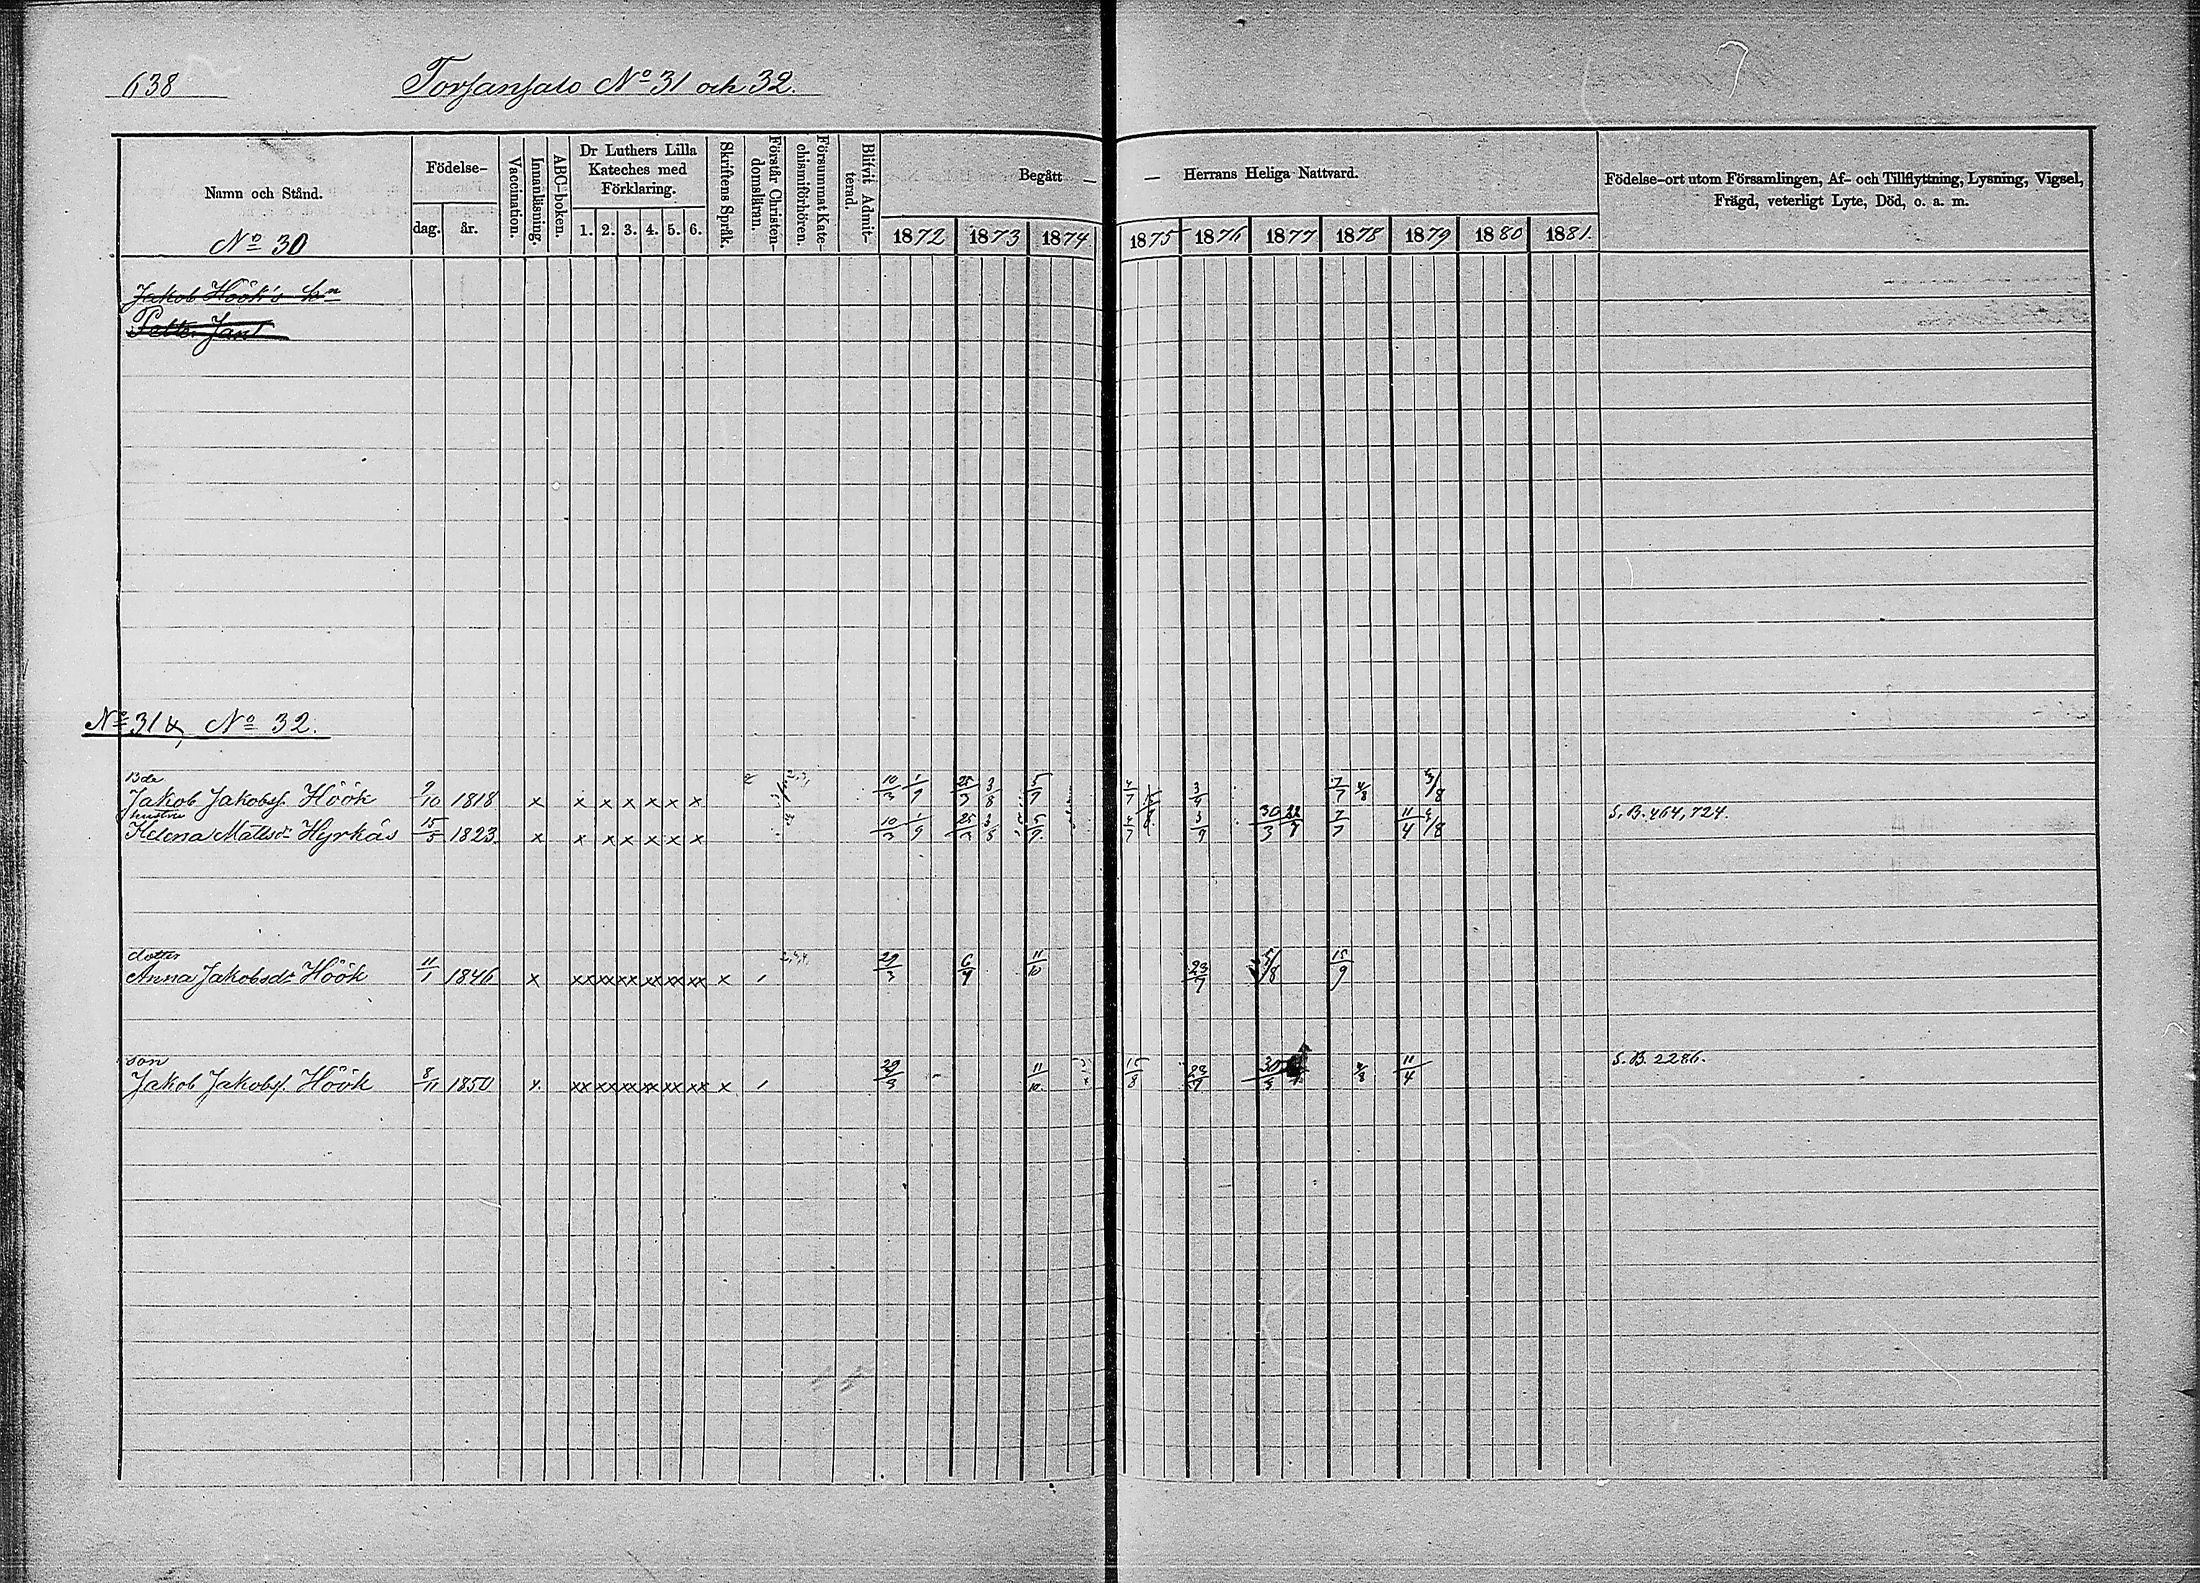 638
Torsansalo No 31 och 32.
Namn och Stånd.
No 30
Födelse-
dag.
år.
Vaccination.
Innanläsning.
ABC-boken.
Dr Luthers Lilla
Kateches med
Förklaring.
1. 2. 3. 4. 5. 6.
Skriftens Språk.
Förstår Christen-
domsläran.
Försummat Kate-
chismiförhören.
Blifvit Admit-
terad.
Begått —
— Herrans Heliga Nattvard.
1872 1873 1874 1875 1876 1877 1878 1879 1880 1881.
Födelse-ort utom Församlingen, Af- och Tillflyttning, Lysning, Vigsel,
Frägd, veterligt Lyte, Död, o. a. m.
Jakob Höök's
Petter Jan
No 31 & No 32.
Bde
Jakob Jakobss. Höök 9/10 1818 x x x x x x x 10/3 1/9 25/3 3/8 5/7 4/7 3/9 7/7 4/8 3/8
hustru
Helena Mattsdr Hyrkäs 15/5 1823. x x x x x x x 10/3 1/9 25/3 3/8 5/7 4/7 3/9 30/3 22/7 7/7 11/4 3/8 S.B. 464, 724.
dotter
Anna Jakobsdr Höök 11/1 1846 x xx xx xx xx xx xx x / 2,3,4, 29/3 6/4 11/10 23/7 5/8 15/9
son
Jakob Jakobss. Höök 8/11 1850 x. xx xx xx xx xx xx x / 29/3 - 11/10 15/8 23/7 30/3 4/8 11/4 S.B. 2286.